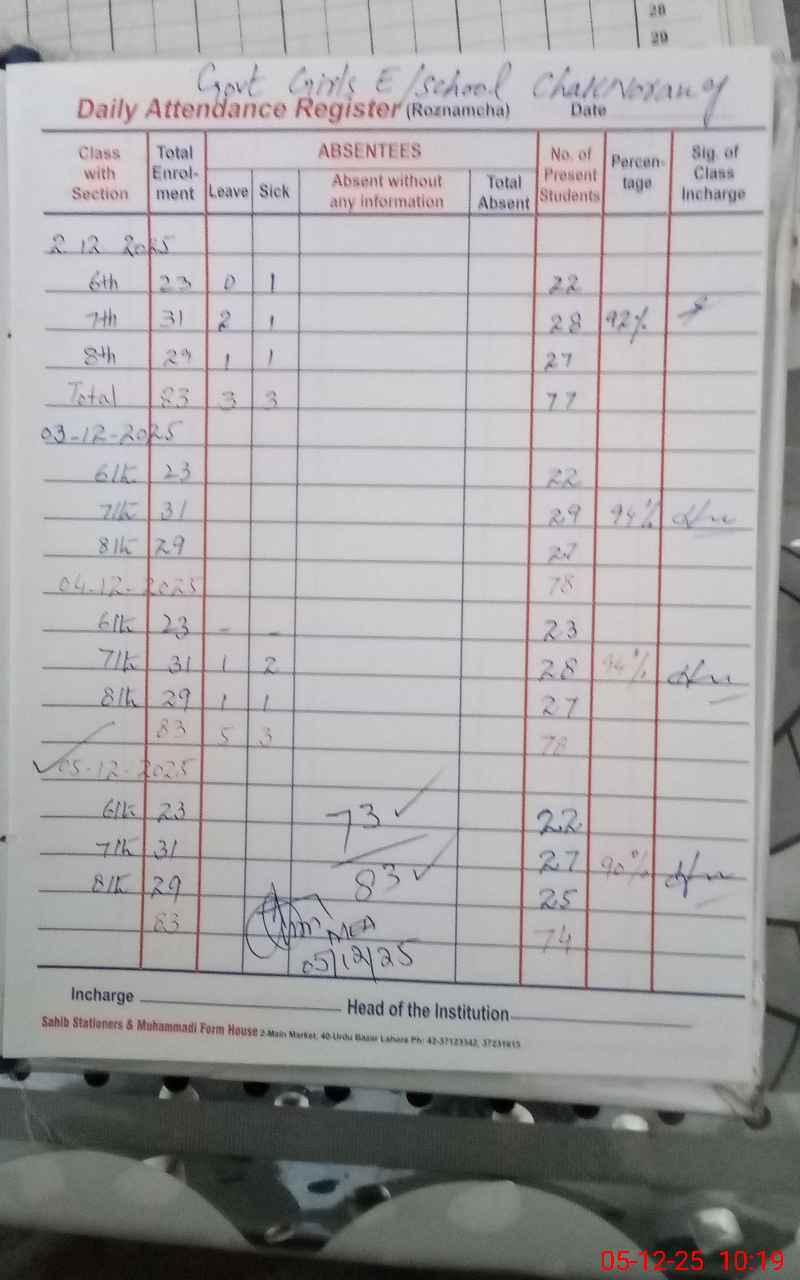 28
29
Govt Girls E/school Chak Norang
Daily Attendance Register (Roznamcha) Date
Class with Section Total Enrol-ment ABSENTEES Leave Sick Absent without any information Total Absent No. of Present Students Percen-tage Sig. of Class Incharge
2 12 2025
6th 23 0 1 22
7th 31 2 1 28 92%
8th 29 1 1 27
Total 83 3 3 77
03-12-2025
6th 23 22
7th 31 29 94%
8th 29 27
04-12-2025 78
6th 23 - - 23
7th 31 1 2 28 94%
8th 29 1 1 27
83 5 3 78
05-12-2025
6th 23 73 22
7th 31 27 90%
8th 29 83 25
83 MEA 74
05/12/25
Incharge Head of the Institution
Sahib Stationers & Muhammadi Form House 2-Main Market, 40-Urdu Bazar Lahore Ph: 42-37123342, 37231615
05-12-25 10:19